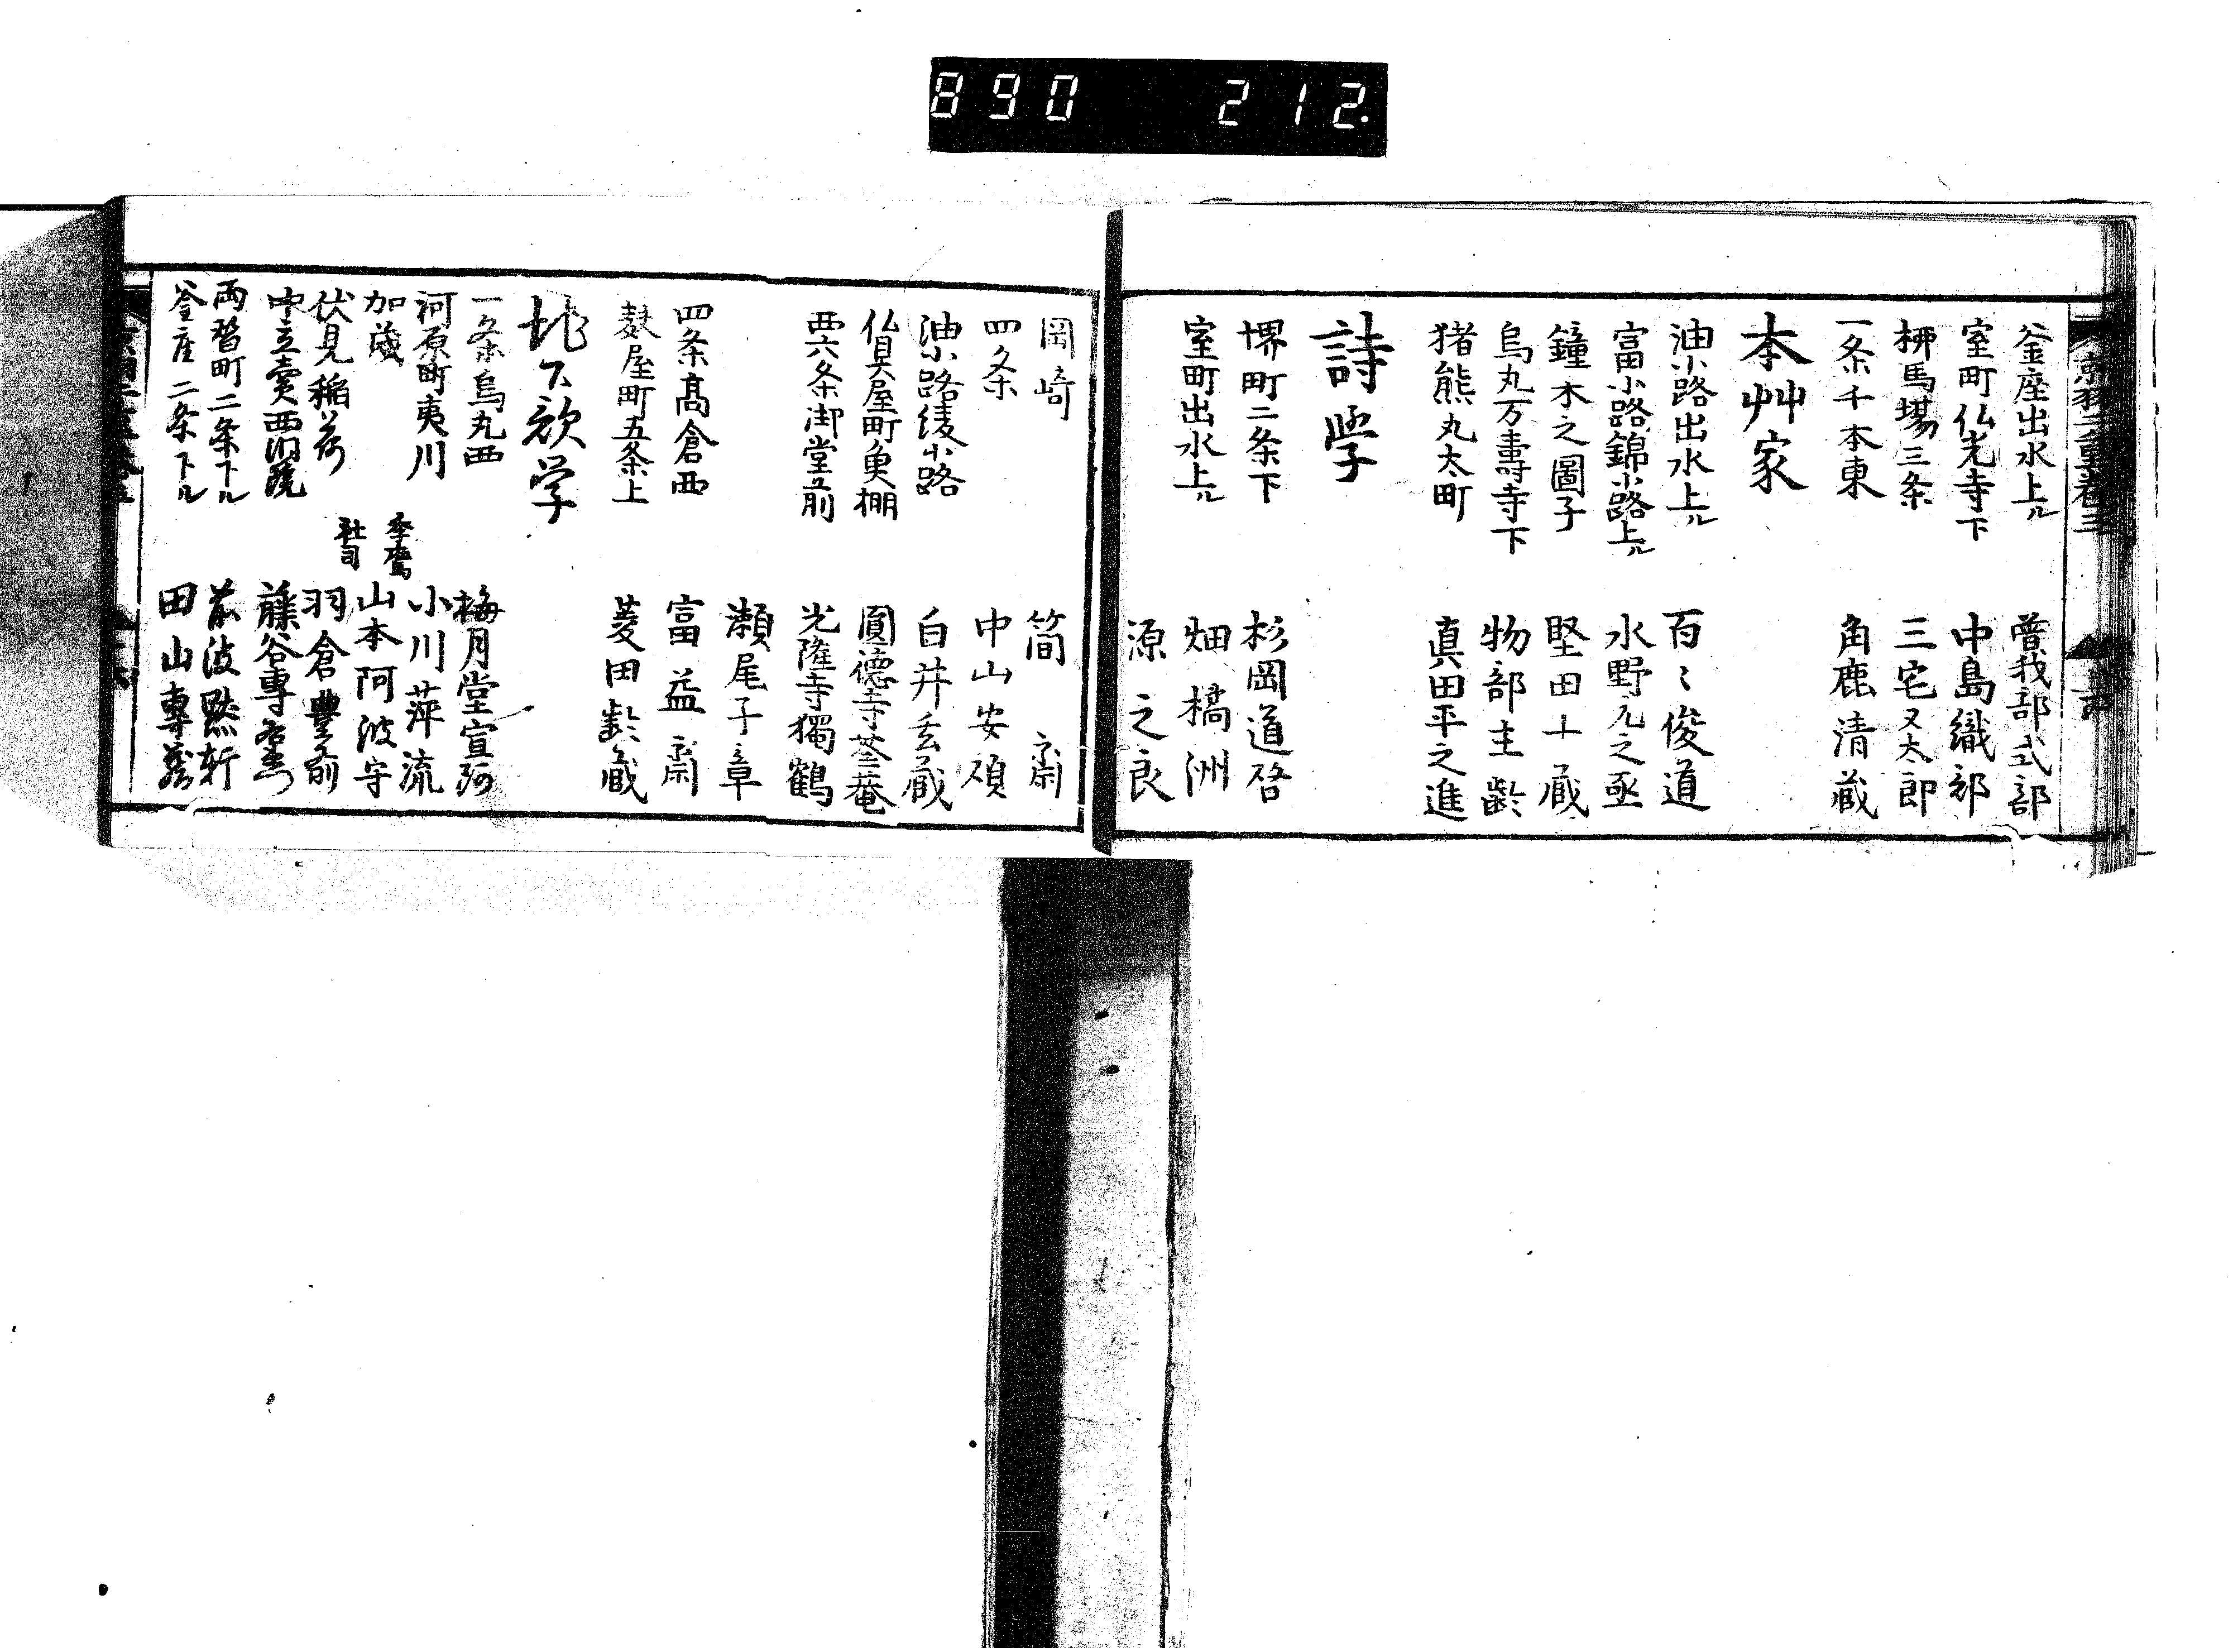 890 212.
釜座出水上ル 曽我部式部
室町仏光寺下 中島織部
柳馬場三条 三宅又太郎
一条千本東 角鹿清蔵
本艸家
油小路出水上ル 百〻俊道
富小路錦小路上ル 水野元之亟
鐘木之圖子 堅田十蔵
烏丸万壽寺下 物部主齢
猪熊丸太町 真田平之進
詩学
堺町二条下 杉岡道啓
室町出水上ル 畑橘洲
源之良
岡崎 简斎
四条 中山安碩
油小路綾小路 白井玄蔵
仏具屋町魚棚 圓徳寺荃菴
西六条御堂前 光隆寺獨鶴
瀬尾子章
四条髙倉西 富益斎
麩屋町五条上 菱田齢蔵
地下歌学
一条烏丸西 梅月堂宣阿
河原町夷川 小川萍流
加茂 季鷹 山本阿波守
伏見稲荷 社司 羽倉豊前
中立売西洞院 藤谷専
両替町二条下ル 並河黙軒
釜座二条下ル 田山専